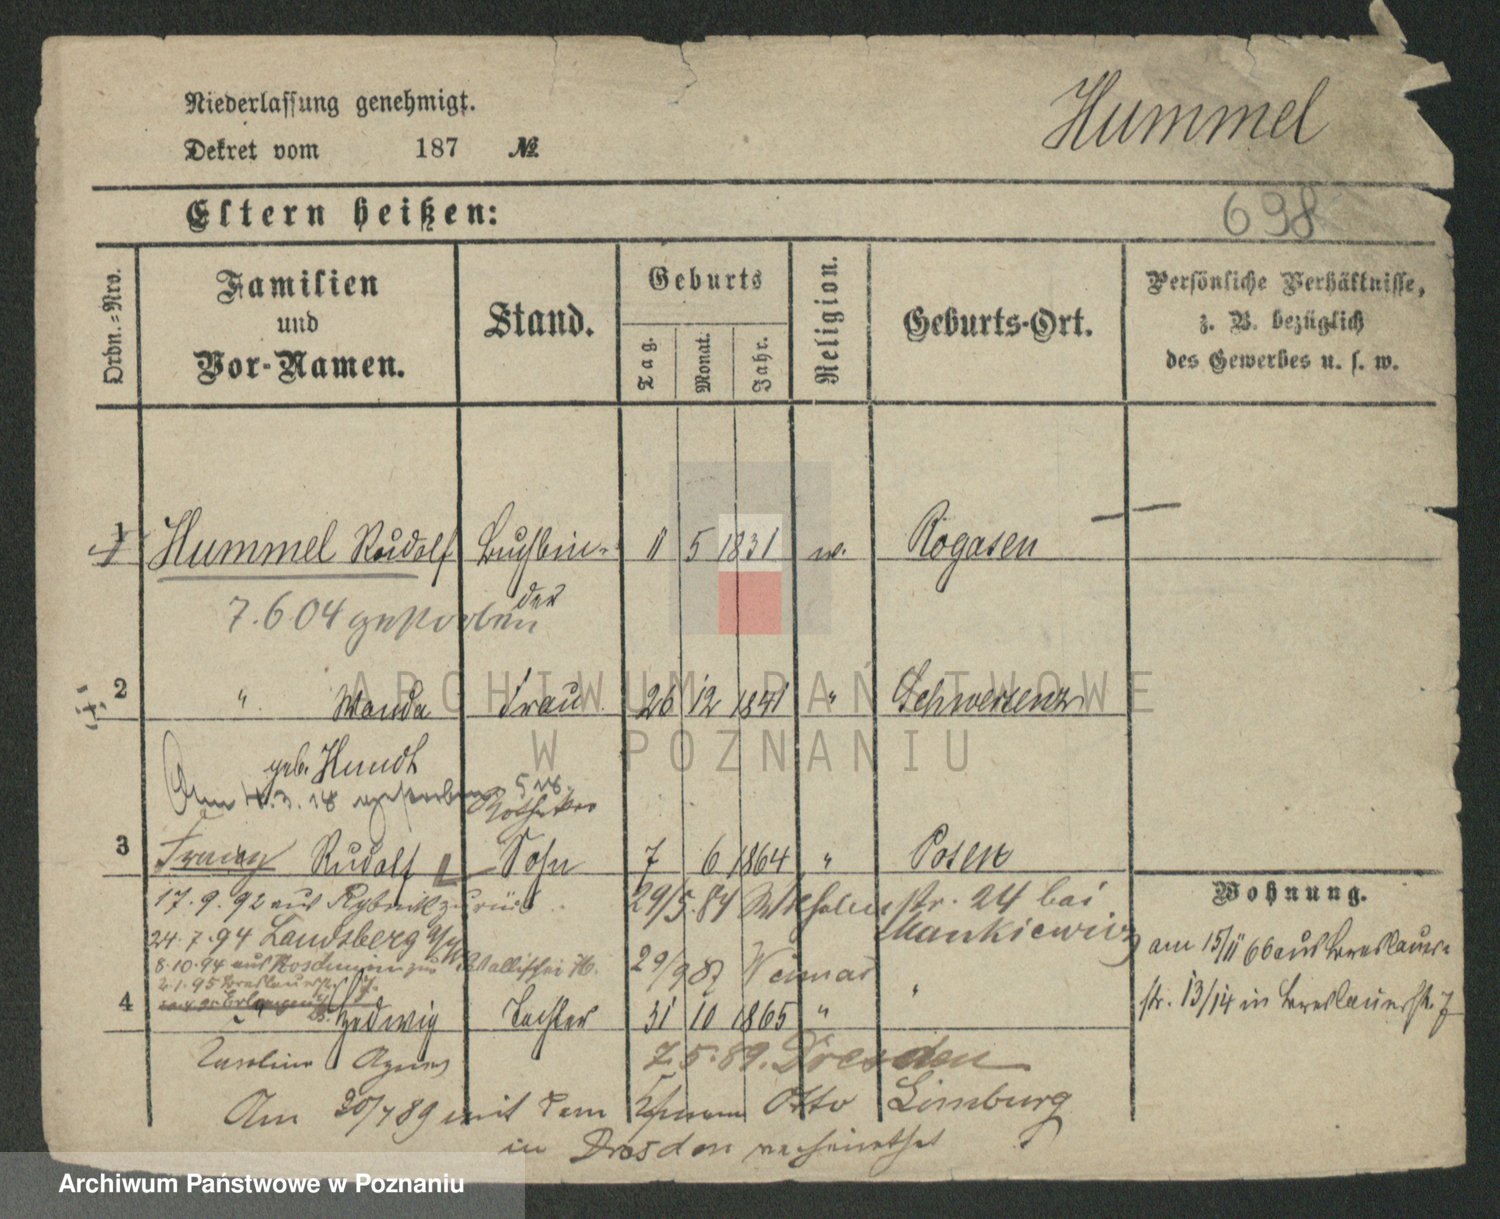 Niederlassung genehmigt.
Dekret vom 187 №
Hummel
Eltern heißen:
698
Ordn.=Nro.
Familien
und
Vor-Namen.
Stand.
Geburts
Tag.
Monat.
Jahr.
Religion.
Geburts-Ort.
Persönliche Verhältnisse,
z. B. bezüglich
des Gewerbes u. s. w.
1 Hummel Rudolf Buchbin- 11 5 1831 w. Rogasen
der
7.6.04 gestorben
2 " Wanda Frau 26 12 1841 " Schwersenz
geb. Hundt
Am 4.3.18 gestorben
Apotheker
3 Franz Rudolf Sohn 7 6 1864 " Posen
17.9.92 aus Rybnik zurück
29/5.84 Wilhelmstr. 24 bei
Mankiewicz
24.7.94 Landsberg a/W
8.10.94 aus Koschmin zur. Wallischei
29/9 87 Weimar
2.1.95 Breslauerstr.
Erlangen
4 " Hedwig Tochter 31 10 1865 " "
Caroline Agnes
7.5.89. Dresden
Am 30/7 89 mit dem Kfmann Otto Limburg
in Dresden verheirathet
Wohnung.
am 15/11 66 aus Breslauer-
str. 13/14 in Breslauerstr. 7
ARCHIWUM PAŃSTWOWE
W POZNANIU
Archiwum Państwowe w Poznaniu